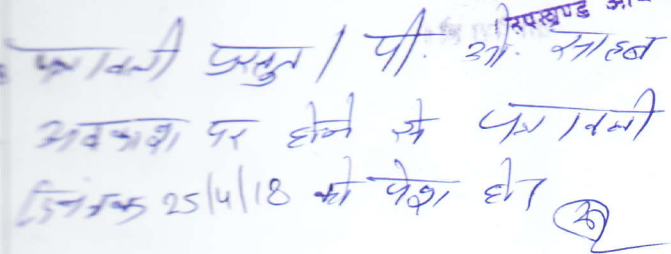 उपखण्ड
पत्रावली प्रस्तुत। पी. ओ. साहब
अवकाश पर होने से पत्रावली
दिनांक 25/4/18 को पेश हो।